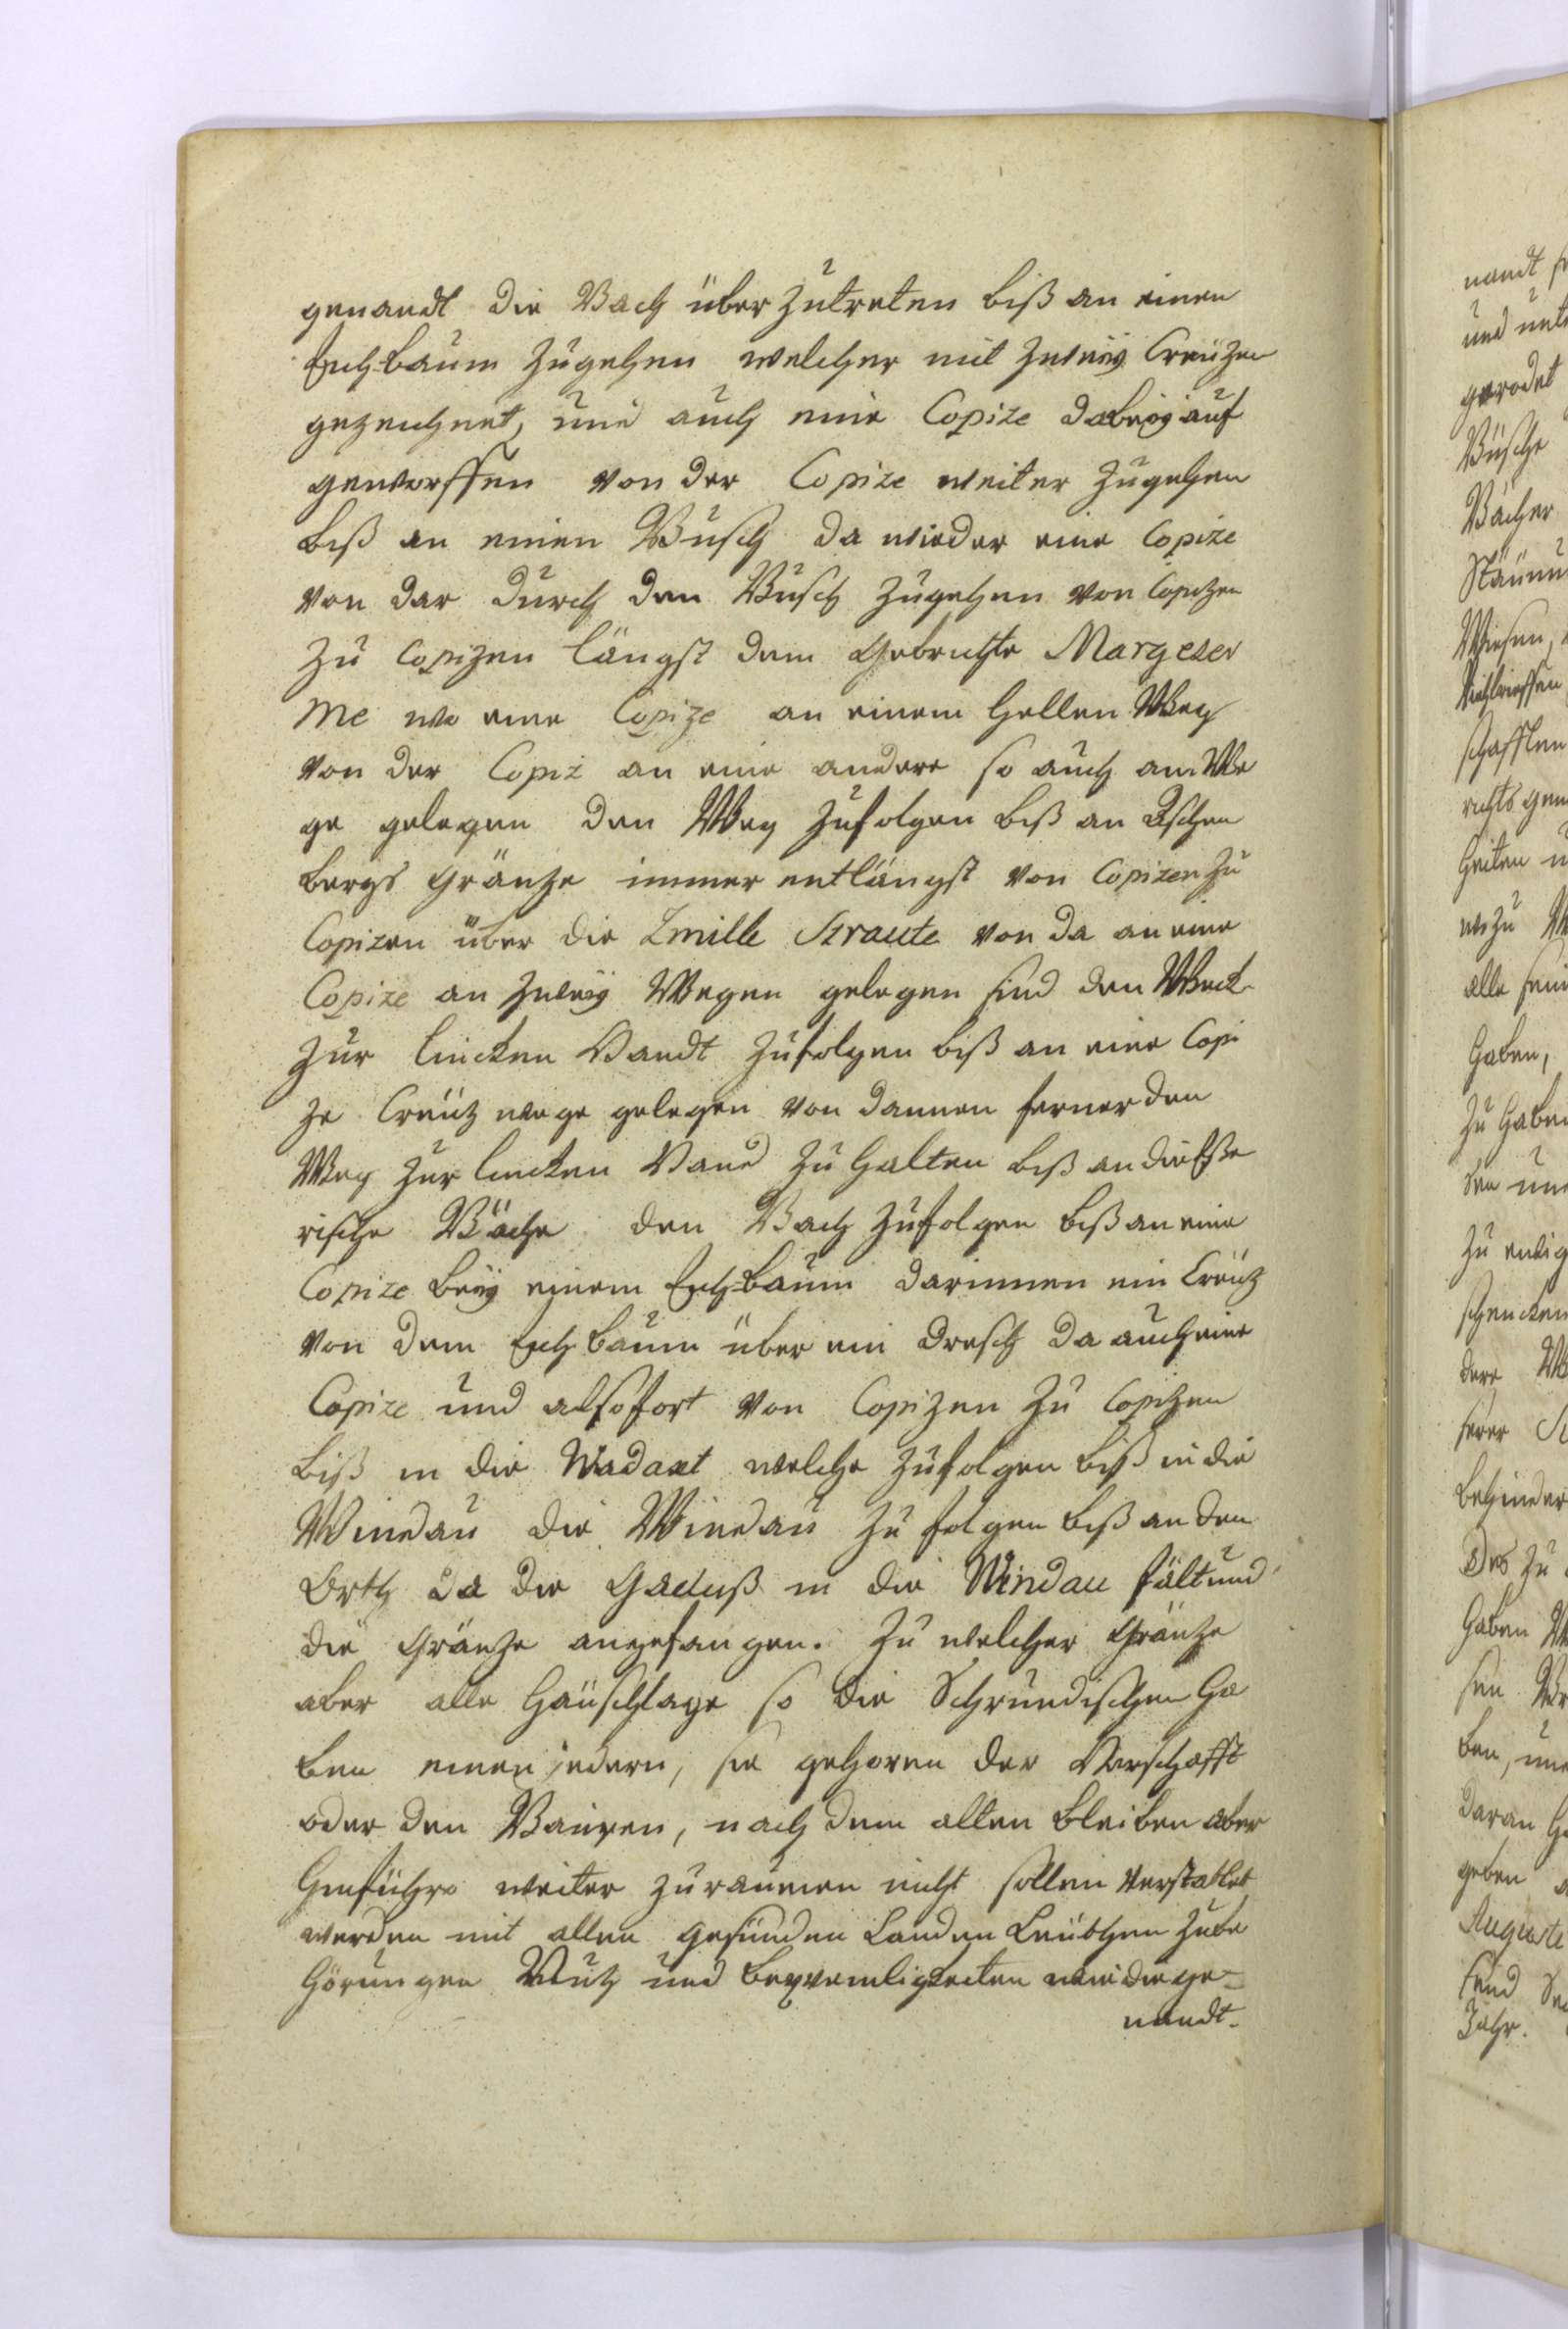 genandt die Bach über zutreten biß an einen
Eich-baum zugehen welcher mit zweÿ Creüzen
gezeichnet, und auch eine Copize dabeÿ auf
geworffen von der Copize weiter zugehen
biß an einen Busch da wieder eine Copize
von dar durch den Busch zugehen von Copizen
zu Copizen längst dem Gebrüchte Margezer
me wo eine Copize an einem hellen Weg
von der Copiz an eine andere so auch am We
ge gelegen den Weg zufolgen biß an Aschen
bergs Gränze immer entlängst von Copizen zu
Copizen über die Zmille Straute von da an eine
Copize an zweÿ Wegen gelegen sind den Weck
zur lincken Handt zufolgen biß an eine Copi
ze Creütz wege gelegen von dannen ferner den
Weg zur lincken Hand zu halten biß an die
rische Bäche den Bach zufolgen biß an eine
Copize beÿ einem Eich-baum darinnen ein Creütz
von dem Eich baum über ein Dresch da auch eine
Copize und alsofort von Copizen zu Copizen
biß in die Wadaxt welche zufolgen biß in die
Windau die Windau zu folgen biß an den
Orth da die in die Windau fält und
die Gränze angefangen. Zu welcher Gränze
aber alle Häüschläge so die Schrundischen ha
ben einen jedern, sie gehören der Herschafft
oder den Bauren, nach dem alten bleiben aber
hinführo weiter zuräumen nicht sollen verstattet
werden mit allen gesünden Landen Leüthen zube
hörungen Nutz und beqvemligkeiten wie die ge-
nandt.

nandt
und
gerodet
Büsche
Bächer
Wiesen,
schafften
heiten
alle
haben,
zu haben
zu ewig
schencken
dere
ferer
behinder
des zu
haben
ben, und
daran
geben
Auguste
Jahr.